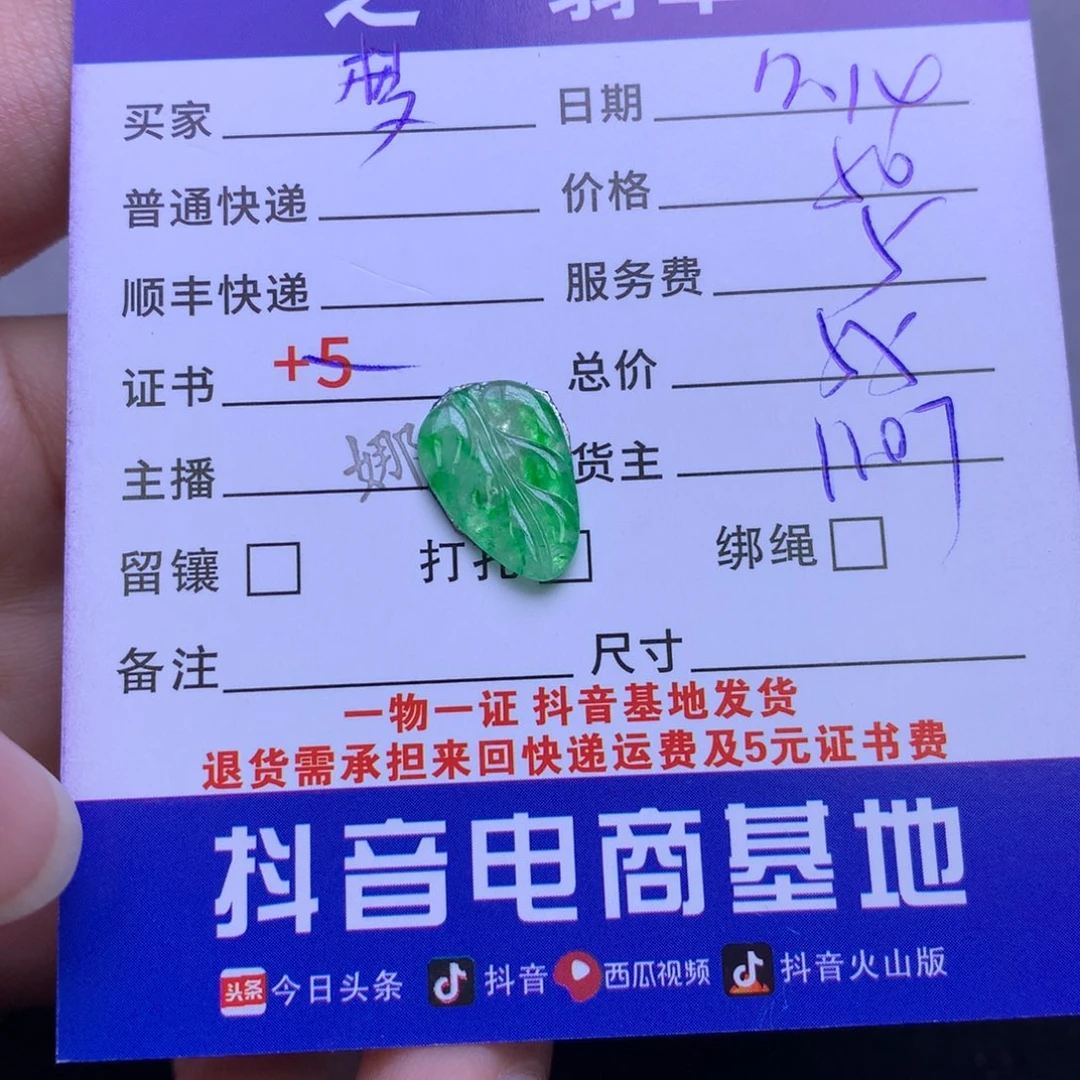 之
买家 梦 日期 7.14
普通快递 价格 50
顺丰快递 服务费 5
证书 +5 总价
主播 娜 货主 1107
留镶 打孔 绑绳
备注 尺寸
一物一证 抖音基地发货
退货需承担来回快递运费及5元证书费
抖音电商基地
头条 今日头条 抖音 西瓜视频 抖音火山版